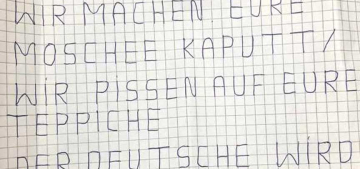 WIR MACHEN EURE
MOSCHEE KAPUTT/
WIR PISSEN AUF EURE
TEPPICHE
DER DEUTSCHE WIRD